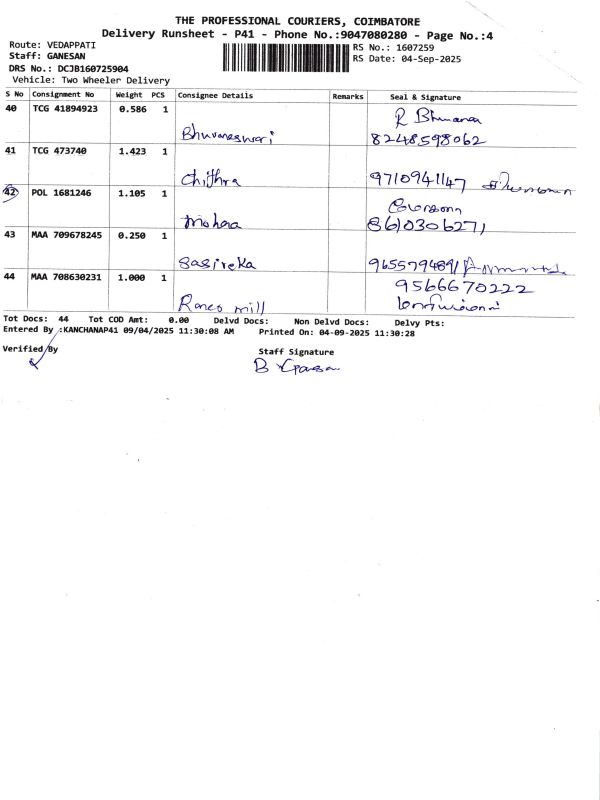 THE PROFESSIONAL COURIERS, COIMBATORE
Delivery Runsheet - P41 - Phone No.:9047080280 - Page No.:4
Route: VEDAPPATI RS No.: 1607259
Staff: GANESAN RS Date: 04-Sep-2025
DRS No.: DCJB160725904
Vehicle: Two Wheeler Delivery
S No Consignment No Weight PCS Consignee Details Remarks Seal & Signature
40 TCG 41894923 0.586 1 R Bhuvana
Bhuvaneswari 8248598062
41 TCG 473740 1.423 1
Chithra 9710941147
42 POL 1681246 1.105 1
Mohana 8610306271
43 MAA 709678245 0.250 1
Sasireka 9655794891
44 MAA 708630231 1.000 1 9566670222
mill
Tot Docs: 44 Tot COD Amt: 0.00 Delvd Docs: Non Delvd Docs: Delvy Pts:
Entered By :KANCHANAP41 09/04/2025 11:30:08 AM Printed On: 04-09-2025 11:30:28
Verified By Staff Signature